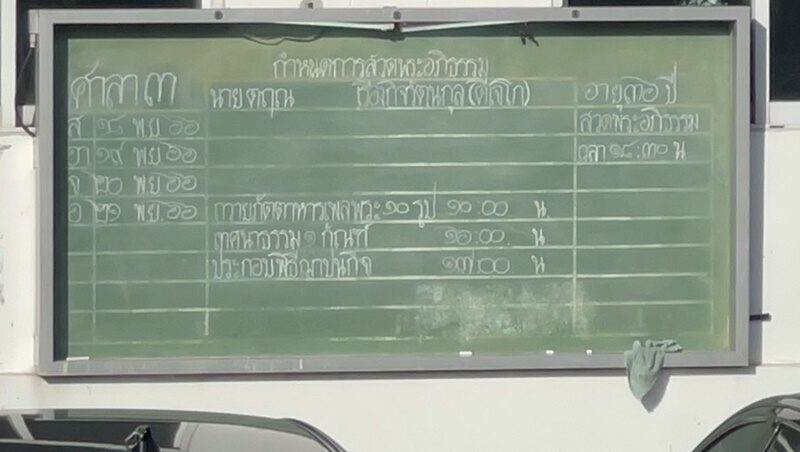 กำหนดการสวดพระอภิธรรม
ศาลา ๓ นาย อายุ ๓๖ ปี
ส ๑๘ พ.ย ๖๖ สวดพระอภิธรรม
อา ๑๙ พ.ย ๖๖ เวลา ๑๘.๓๐ น
จ ๒๐ พ.ย ๖๖
อ ๒๑ พ.ย ๖๖ ถวายภัตตาหารเพลพระ ๑๐ รูป ๑๐.๐๐ น.
เทศนาธรรม ๑ กัณฑ์ ๑๖.๐๐ น
ประกอบพิธีฌาปนกิจ ๑๗.๐๐ น